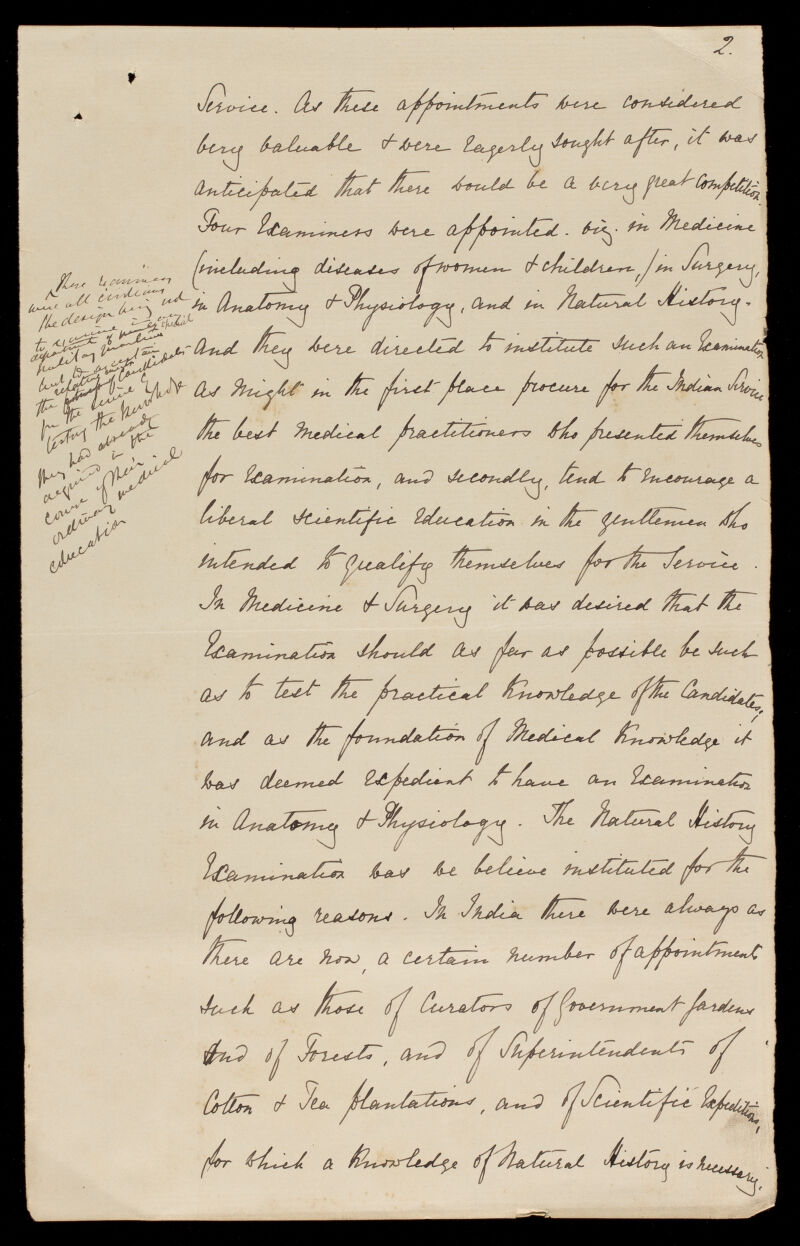 2.
Service. As these appointments were considered
very valuable & were eagerly sought after, it was
anticipated that there would be a very great competition.
Four Examiners were appointed. viz. in Medicine
(including diseases of women & children,) in Surgery,
in Anatomy & Physiology, and in Natural History.
And they were directed to institute such an Examination
as might in the first place procure for the Indian Service
the best Medical practitioners who presented themselves
for Examination, and secondly, tend to encourage a
liberal scientific Education in the gentlemen who
intended to qualify themselves for the Service.
In Medicine & Surgery it was desired that the
Examination should as far as possible be such
as to test the practical Knowledge of the Candidates;
and as the foundation of Medical Knowledge it
was deemed expedient to have an Examination
in Anatomy & Physiology. The Natural History
Examination was we believe instituted for the
following reasons. In India there were always as
there are now, a certain number of appointments
such as those of Curators of Government Gardens
And of Forests, and of Superintendents of
Cotton & Tea plantations, and of Scientific Expeditions,
for which a Knowledge of Natural History is necessary.
These examiners
were all civilians
the design being not
to examine in any
department of
military medicine
but to ascertain
the relative
of candidates
for the service by
testing the knowledge
they had already
acquired in the
course of their
ordinary medical
education